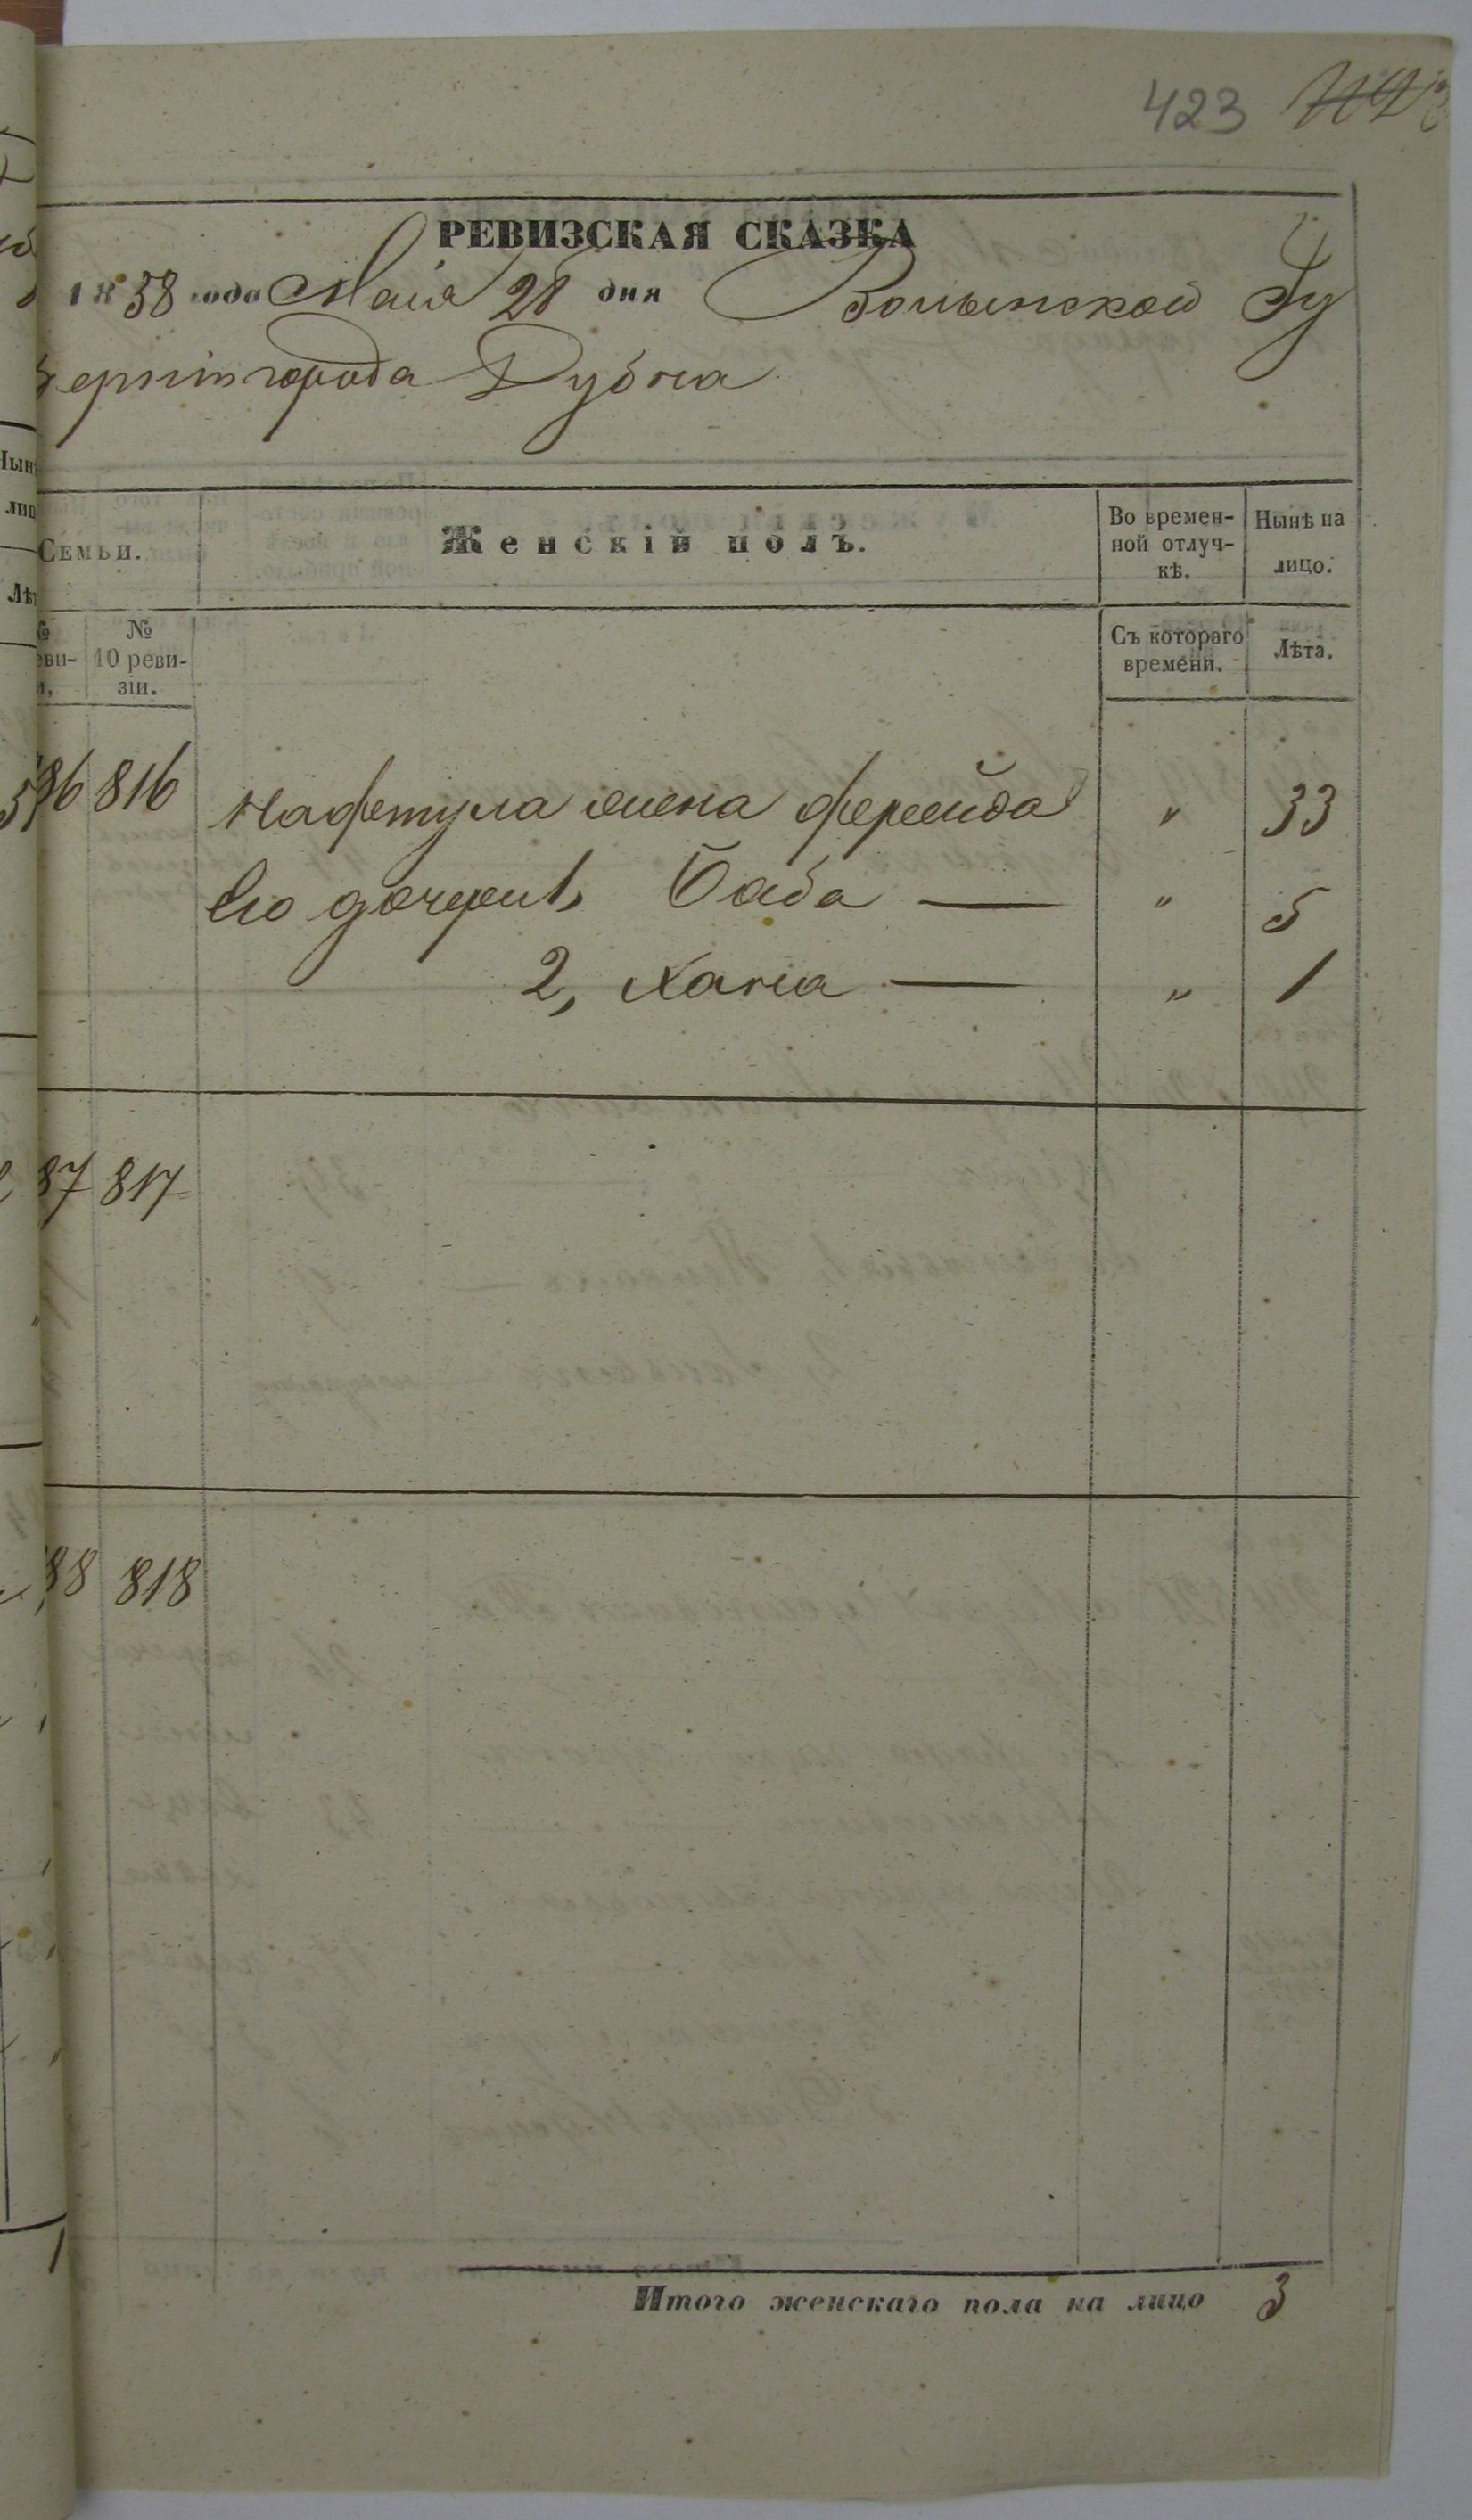 423
РЕВИЗСКАЯ СКАЗКА
1858 года Маія 28 дня Волынской Гу
берніи города Дубна
Семьи.
Женскій полъ.
Во времен-
ной отлуч-
кѣ.
Нынѣ на
лицо.
№
10 реви-
зіи.
Съ котораго
времени.
Лѣта.
816 Нафтула жена Фрейда " 33
Его дочери 1, Баба — " 5
2, Хана — " 1
87 817
88 818
Итого женскаго пола на лицо 3